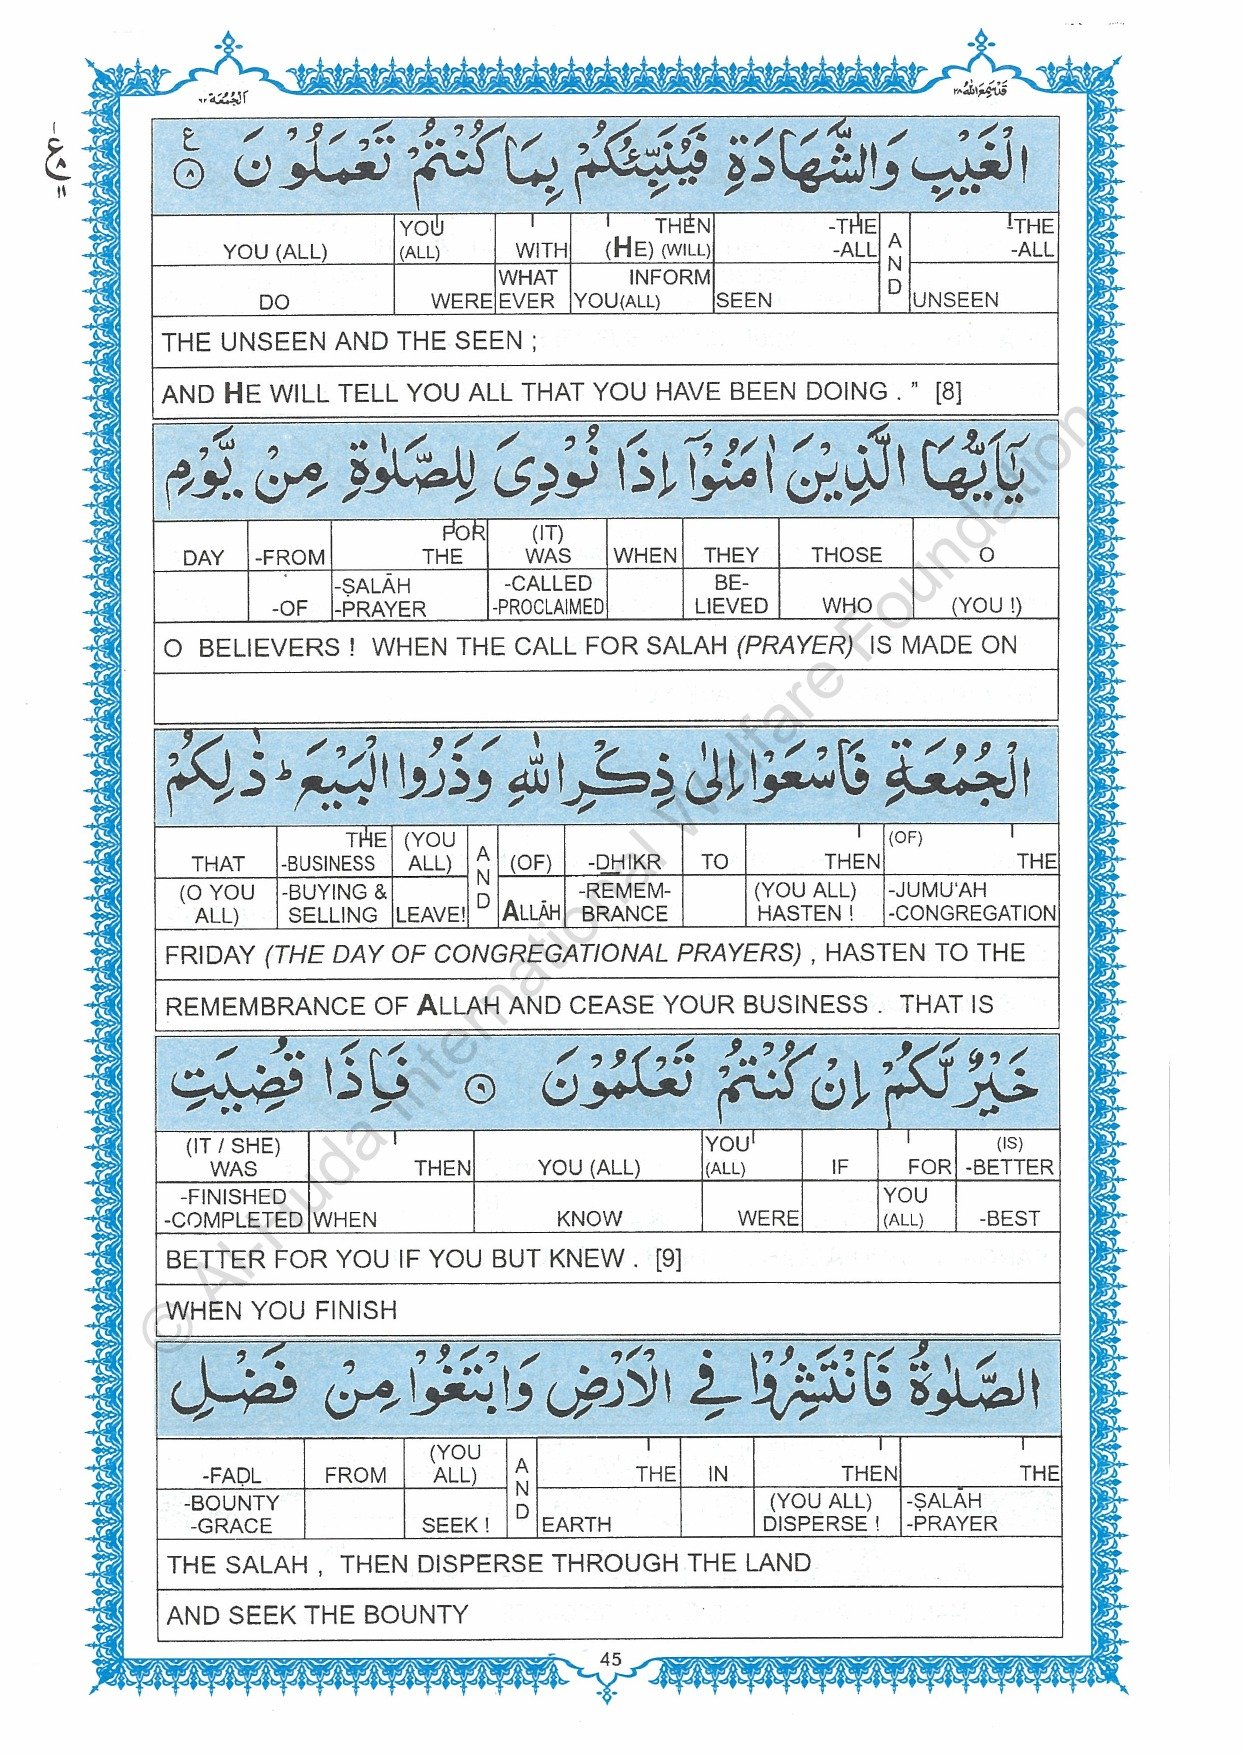 اَلْجُمُعَة ٦٢
قَدْ سَمِعَ اللهُ ٢٨
ع ٨ ١١
الْغَيْبِ وَالشَّهَادَةِ فَيُنَبِّئُكُمْ بِمَا كُنْتُمْ تَعْمَلُوْنَ ۝٨ ع
YOU (ALL) YOU (ALL) WITH THEN (HE) (WILL) -THE -ALL AND -THE -ALL
DO WERE WHAT EVER INFORM YOU(ALL) SEEN UNSEEN
THE UNSEEN AND THE SEEN ;
AND HE WILL TELL YOU ALL THAT YOU HAVE BEEN DOING . ” [8]
يٰٓاَيُّهَا الَّذِيْنَ اٰمَنُوْٓا اِذَا نُوْدِىَ لِلصَّلٰوةِ مِنْ يَّوْمِ
DAY -FROM FOR THE (IT) WAS WHEN THEY THOSE O
-OF -ṢALĀH -PRAYER -CALLED -PROCLAIMED BE- LIEVED WHO (YOU !)
O BELIEVERS ! WHEN THE CALL FOR SALAH (PRAYER) IS MADE ON
الْجُمُعَةِ فَاسْعَوْا اِلٰى ذِكْرِ اللّٰهِ وَذَرُوا الْبَيْعَ ؕ ذٰلِكُمْ
THAT THE -BUSINESS (YOU ALL) AND (OF) -DHIKR TO THEN (OF) THE
(O YOU ALL) -BUYING & SELLING LEAVE! ALLĀH -REMEM- BRANCE (YOU ALL) HASTEN ! -JUMU'AH -CONGREGATION
FRIDAY (THE DAY OF CONGREGATIONAL PRAYERS) , HASTEN TO THE
REMEMBRANCE OF ALLAH AND CEASE YOUR BUSINESS . THAT IS
خَيْرٌ لَّكُمْ اِنْ كُنْتُمْ تَعْلَمُوْنَ ۝٩ فَاِذَا قُضِيَتِ
(IT / SHE) WAS THEN YOU (ALL) YOU (ALL) IF FOR (IS) -BETTER
-FINISHED -COMPLETED WHEN KNOW WERE YOU (ALL) -BEST
BETTER FOR YOU IF YOU BUT KNEW . [9]
WHEN YOU FINISH
الصَّلٰوةُ فَانْتَشِرُوْا فِي الْاَرْضِ وَابْتَغُوْا مِنْ فَضْلِ
-FAḌL FROM (YOU ALL) AND THE IN THEN THE
-BOUNTY -GRACE SEEK ! EARTH (YOU ALL) DISPERSE ! -ṢALĀH -PRAYER
THE SALAH , THEN DISPERSE THROUGH THE LAND
AND SEEK THE BOUNTY
45
© Al-Huda International Welfare Foundation